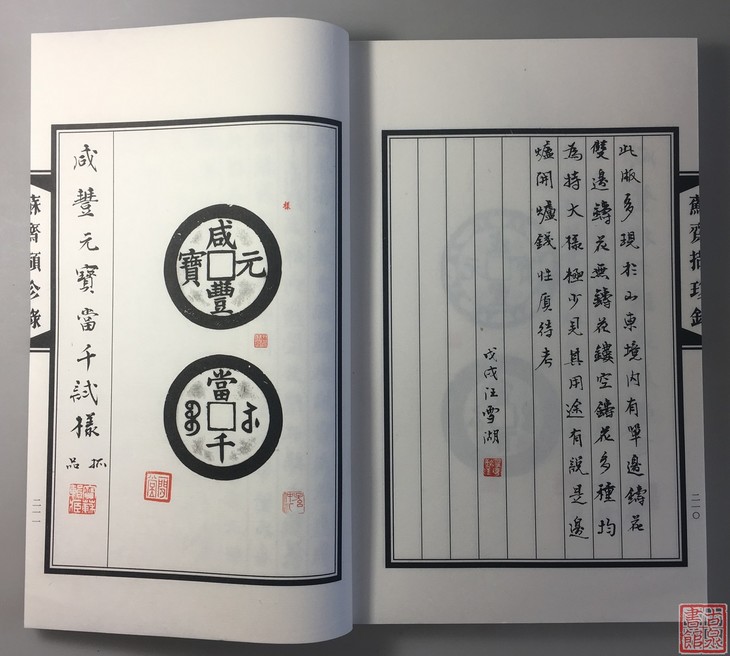 此版多現於山東境內有單邊鑄花
雙邊鑄花無鑄花鏤空鑄花多種均
為特大樣極少見其用途有說是邊
爐開爐錢性质待考
戊戌汪雪湖
二一〇
樣
咸豐元寶
當千
咸豐元寶當千試樣
孤品
二一一
古泉書館